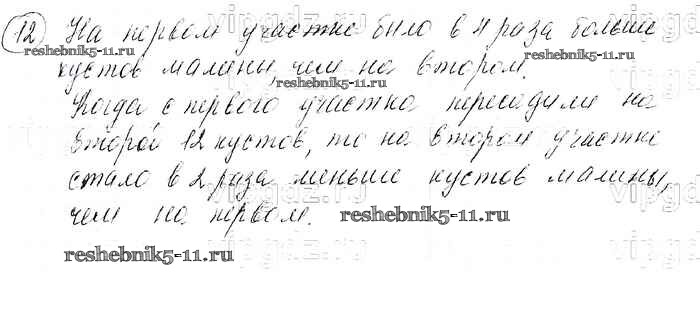 12 На первом участке было в 4 раза больше
reshebnik5-11.ru
reshebnik5-11.ru
кустов малины, чем на втором.
reshebnik5-11.ru
Когда с первого участка пересадили на
второй 12 кустов, то на втором участке
стало в 2 раза меньше кустов малины,
чем на первом.
reshebnik5-11.ru
reshebnik5-11.ru
vipgdz.ru
vipgdz.ru
vipgdz.ru